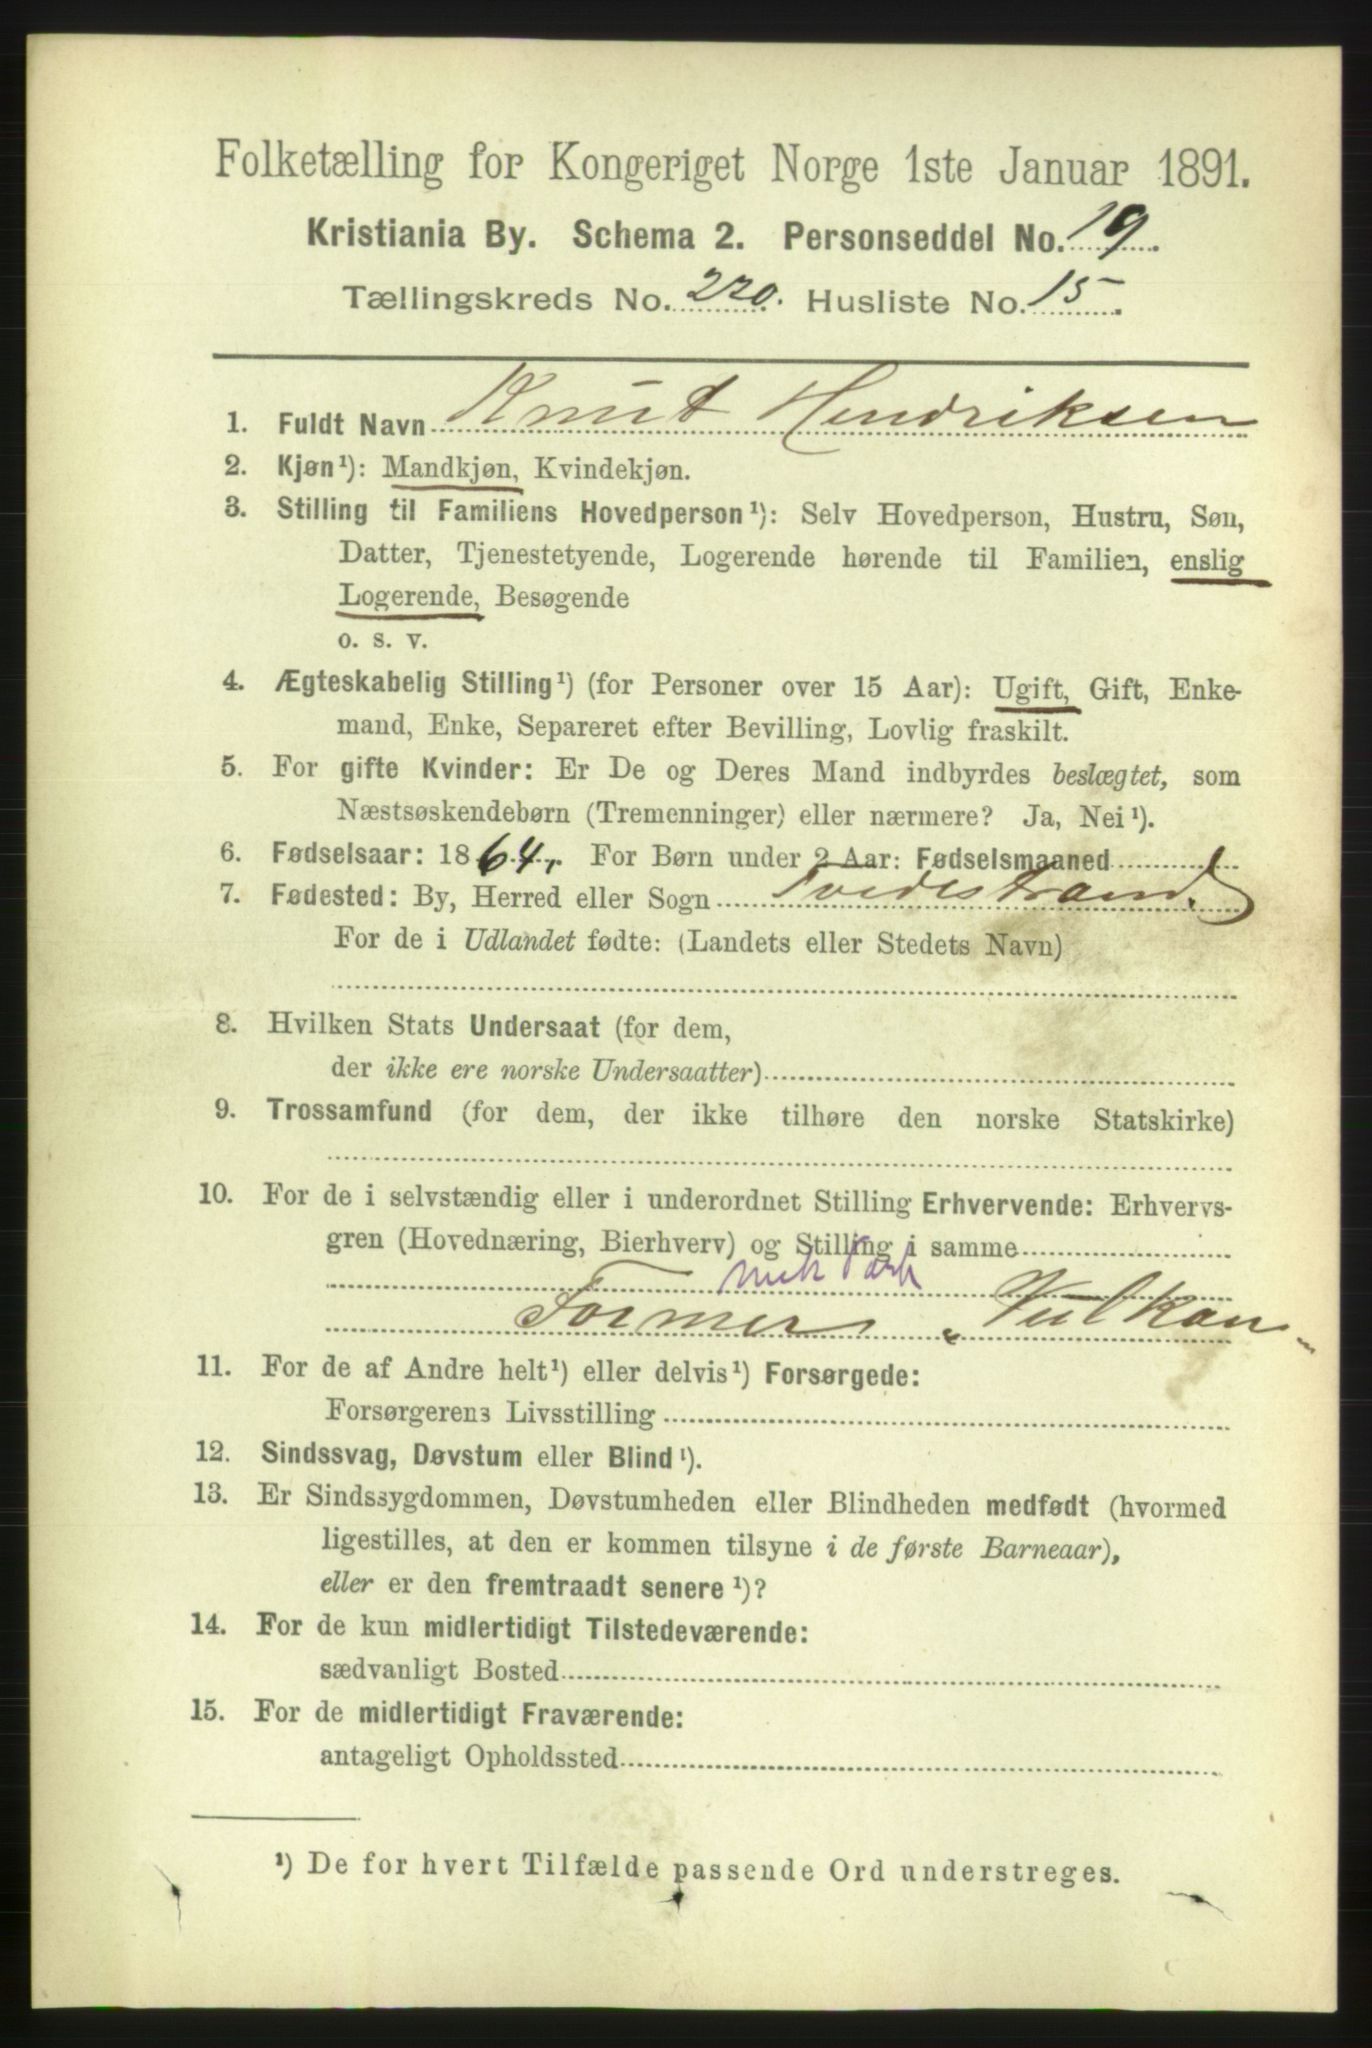 Folketælling for Kongeriget Norge 1ste Januar 1891.
Kristiania By. Schema 2. Personseddel No. 19.
Tællingskreds No. 220. Husliste No. 15.
1. Fuldt Navn Knut Hendriksen
2. Kjøn¹): Mandkjøn, Kvindekjøn.
3. Stilling til Familiens Hovedperson¹): Selv Hovedperson, Hustru, Søn,
Datter, Tjenestetyende, Logerende hørende til Familien, enslig
Logerende, Besøgende
o. s. v.
4. Ægteskabelig Stilling¹) (for Personer over 15 Aar): Ugift, Gift, Enke-
mand, Enke, Separeret efter Bevilling, Lovlig fraskilt.
5. For gifte Kvinder: Er De og Deres Mand indbyrdes beslægtet, som
Næstsøskendebørn (Tremenninger) eller nærmere? Ja, Nei¹).
6. Fødselsaar: 1864. For Børn under 2 Aar: Fødselsmaaned
7. Fødested: By, Herred eller Sogn Tvedestrand.
For de i Udlandet fødte: (Landets eller Stedets Navn)
8. Hvilken Stats Undersaat (for dem,
der ikke ere norske Undersaatter)
9. Trossamfund (for dem, der ikke tilhøre den norske Statskirke)
10. For de i selvstændig eller i underordnet Stilling Erhvervende: Erhvervs-
gren (Hovednæring, Bierhverv) og Stilling i samme
mek
Former „Vulkan"
11. For de af Andre helt¹) eller delvis¹) Forsørgede:
Forsørgerens Livsstilling
12. Sindssvag, Døvstum eller Blind¹).
13. Er Sindssygdommen, Døvstumheden eller Blindheden medfødt (hvormed
ligestilles, at den er kommen tilsyne i de første Barneaar),
eller er den fremtraadt senere¹)?
14. For de kun midlertidigt Tilstedeværende:
sædvanligt Bosted
15. For de midlertidigt Fraværende:
antageligt Opholdssted
¹) De for hvert Tilfælde passende Ord understreges.